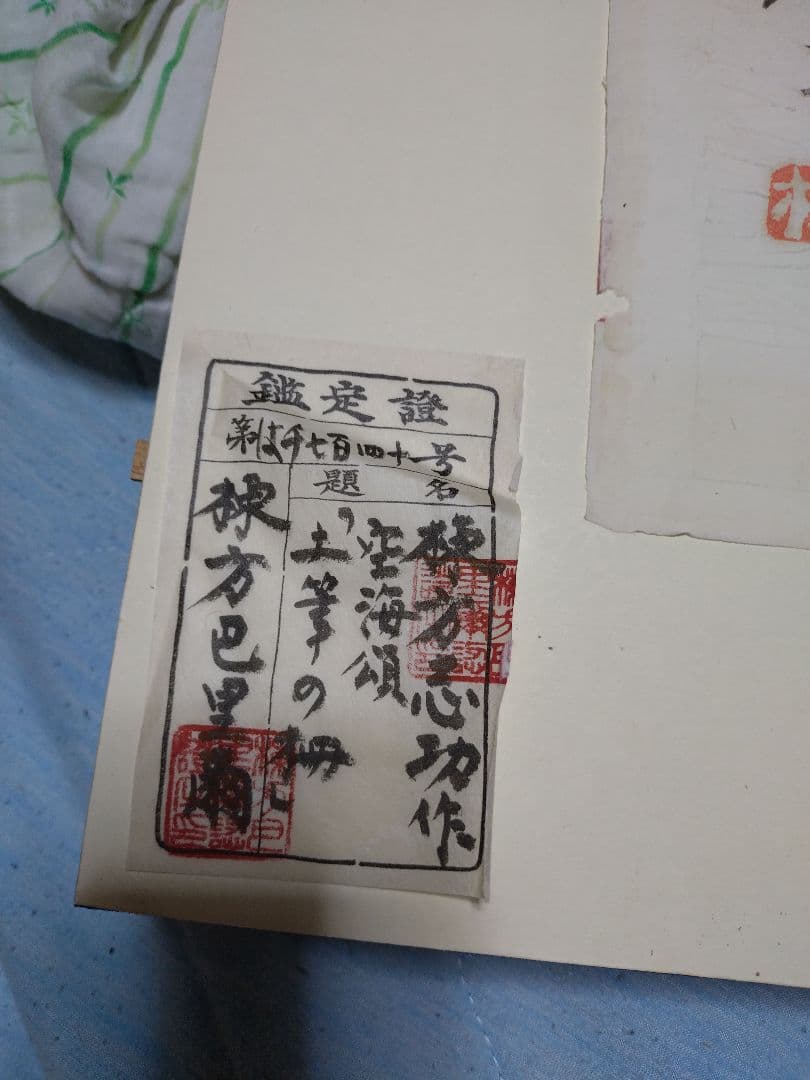 鑑定證
第 千七百四十 号
題名
棟方志功作
空海頌
“土筆の柵
棟方巴里爾